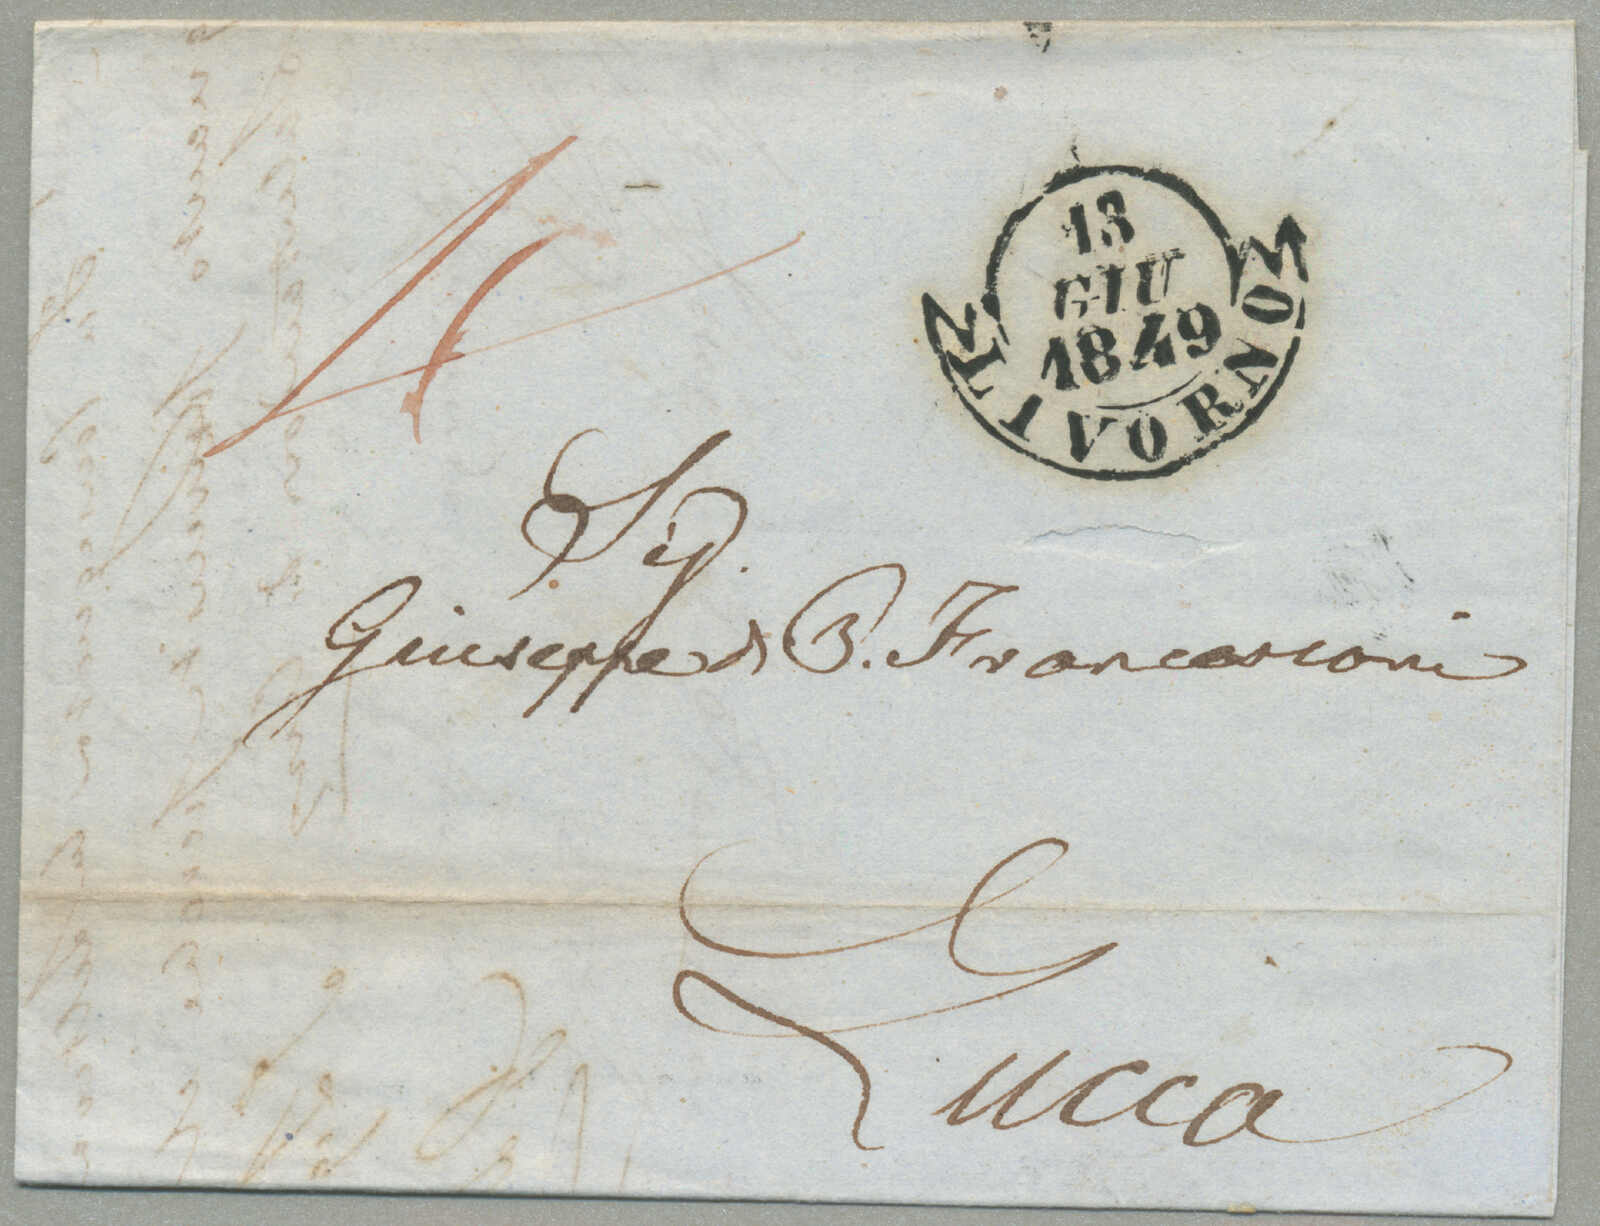 4
13
GIU
1849
LIVORNO
Sig.
Giuseppe di B. Francesconi
Lucca